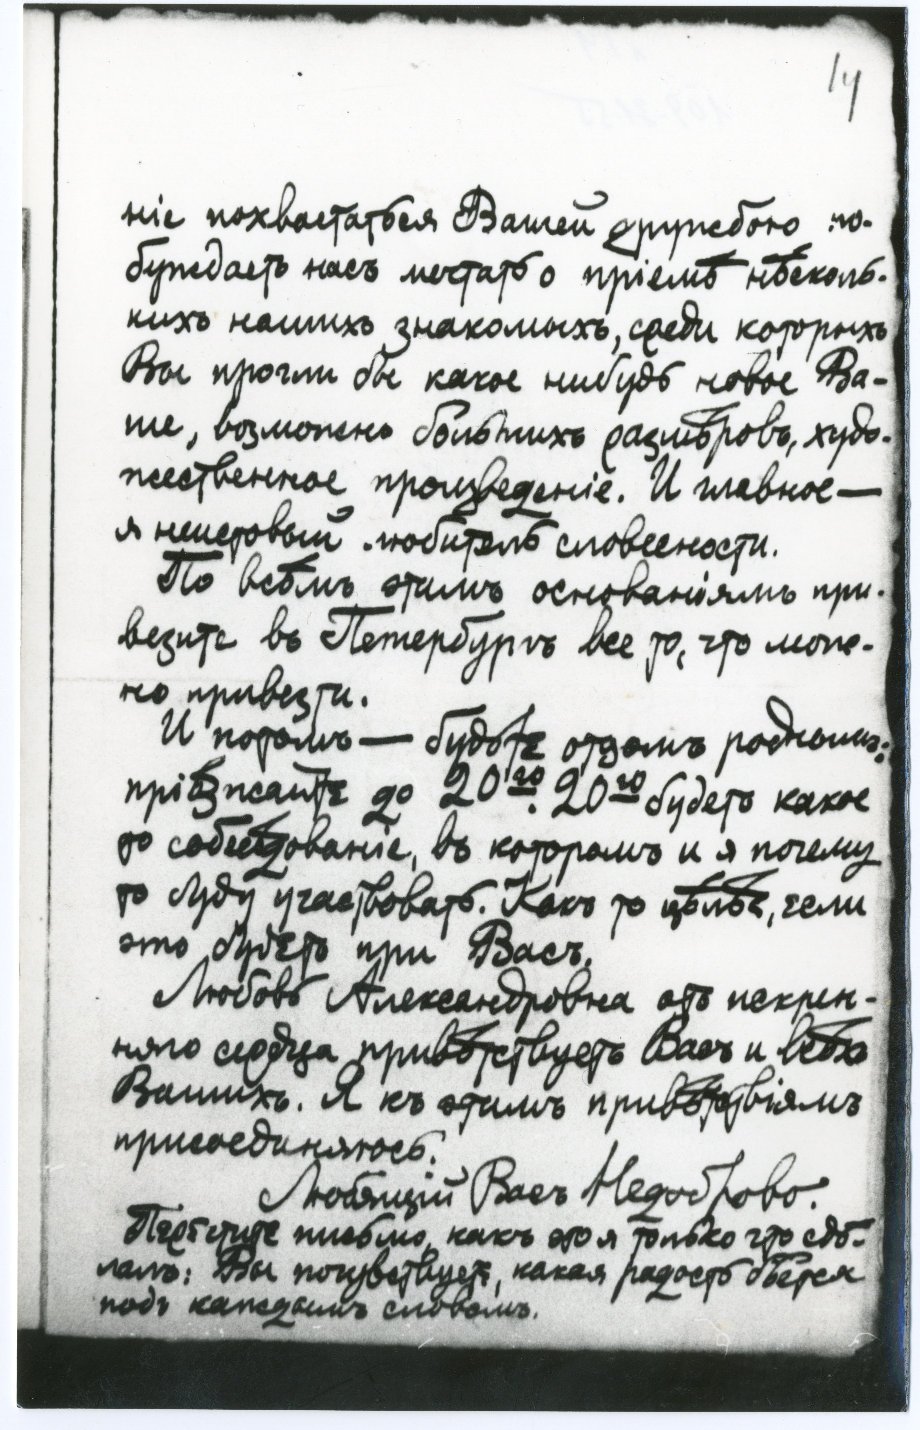 14
ніе похвастаться Вашей дружбою по-
буждаетъ насъ мечтать о пріемѣ нѣсколь-
кихъ нашихъ знакомыхъ, среди которыхъ
Вы прочли бы какое нибудь новое Ва-
ше, возможно большихъ размѣровъ, худо-
жественное произведеніе. И главное —
я неистовый любитель словесности.
По всѣмъ этимъ основаніямъ при-
везите въ Петербургъ все то, что мож-
но привезти.
И потомъ — будьте отцомъ роднымъ:
пріѣзжайте до 20го. 20го будетъ какое
то собесѣдованіе, въ которомъ и я почему
то буду участвовать. Какъ то цѣлѣе, если
это будетъ при Васъ.
Любовь Александровна отъ искрен-
няго сердца привѣтствуетъ Васъ и всѣхъ
Вашихъ. Я къ этимъ привѣтствіямъ
присоединяюсь.
Любящій Васъ Недоброво.
Перечтите письмо, какъ это я только что сдѣ-
лалъ: Вы почувствуете, какая радость бьется
подъ каждымъ словомъ.